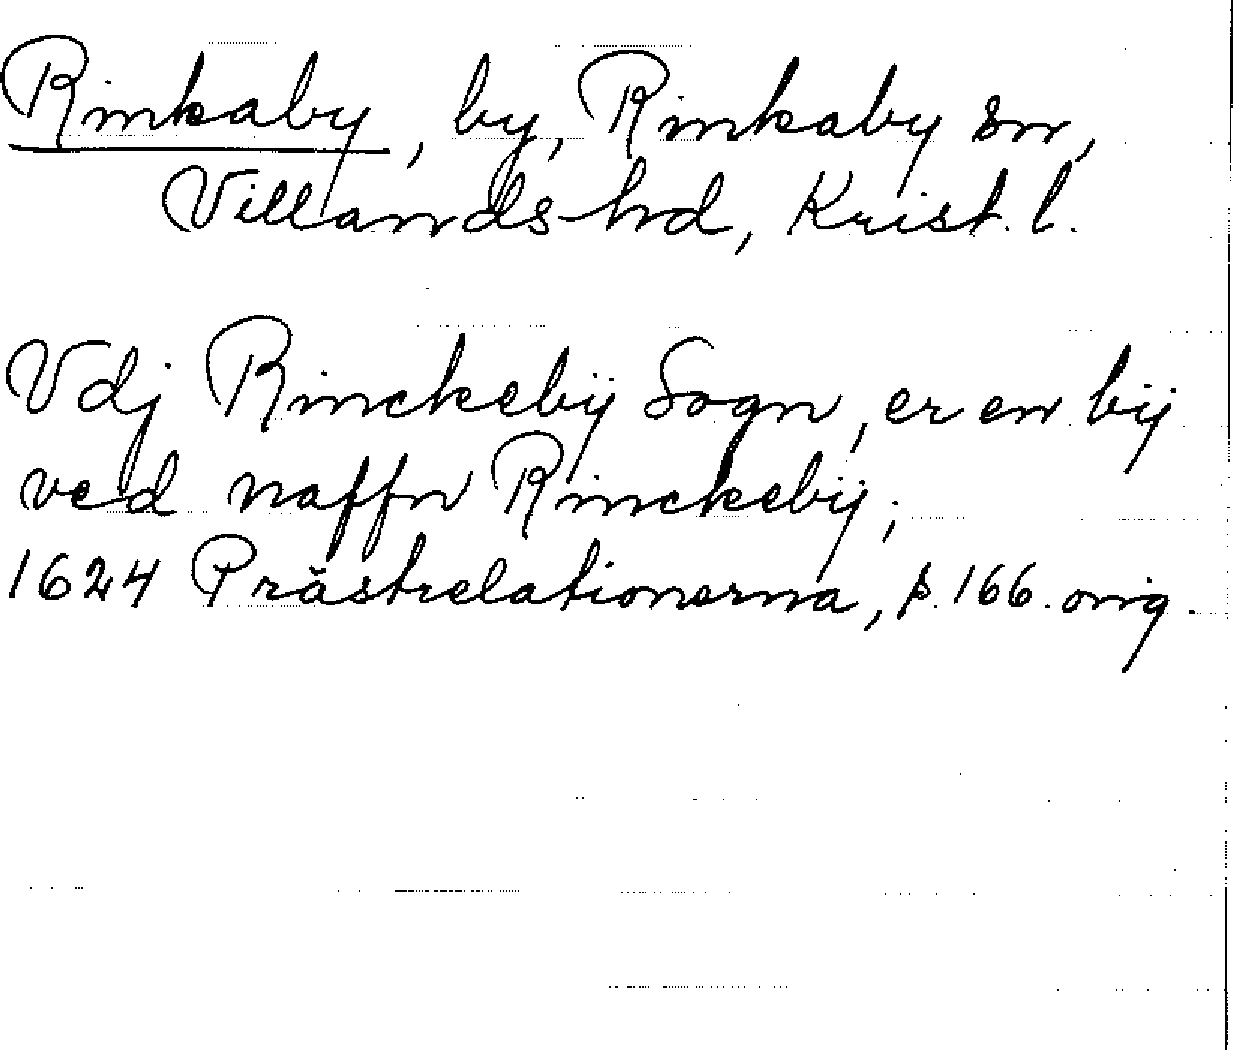 Rinkaby, by, Rinkaby sn,
Villands hd, Krist. l.
Vdj Rinckebÿ Sogn, er en bÿ
ved naffn Rinckebÿ;
1624 Prästrelationerna, p. 166. orig.